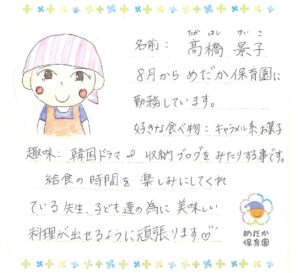 たか はし けいこ
名前：髙橋 景子
8月から めだか保育園に
勤務しています。
好きな食べ物：キャラメル系お菓子
趣味：韓国ドラマや 収納ブログをみたりする事です。
給食の時間を 楽しみにしてくれ
ている先生、子ども達の為に 美味しい
料理が出せるように頑張ります♡
めだか
保育園